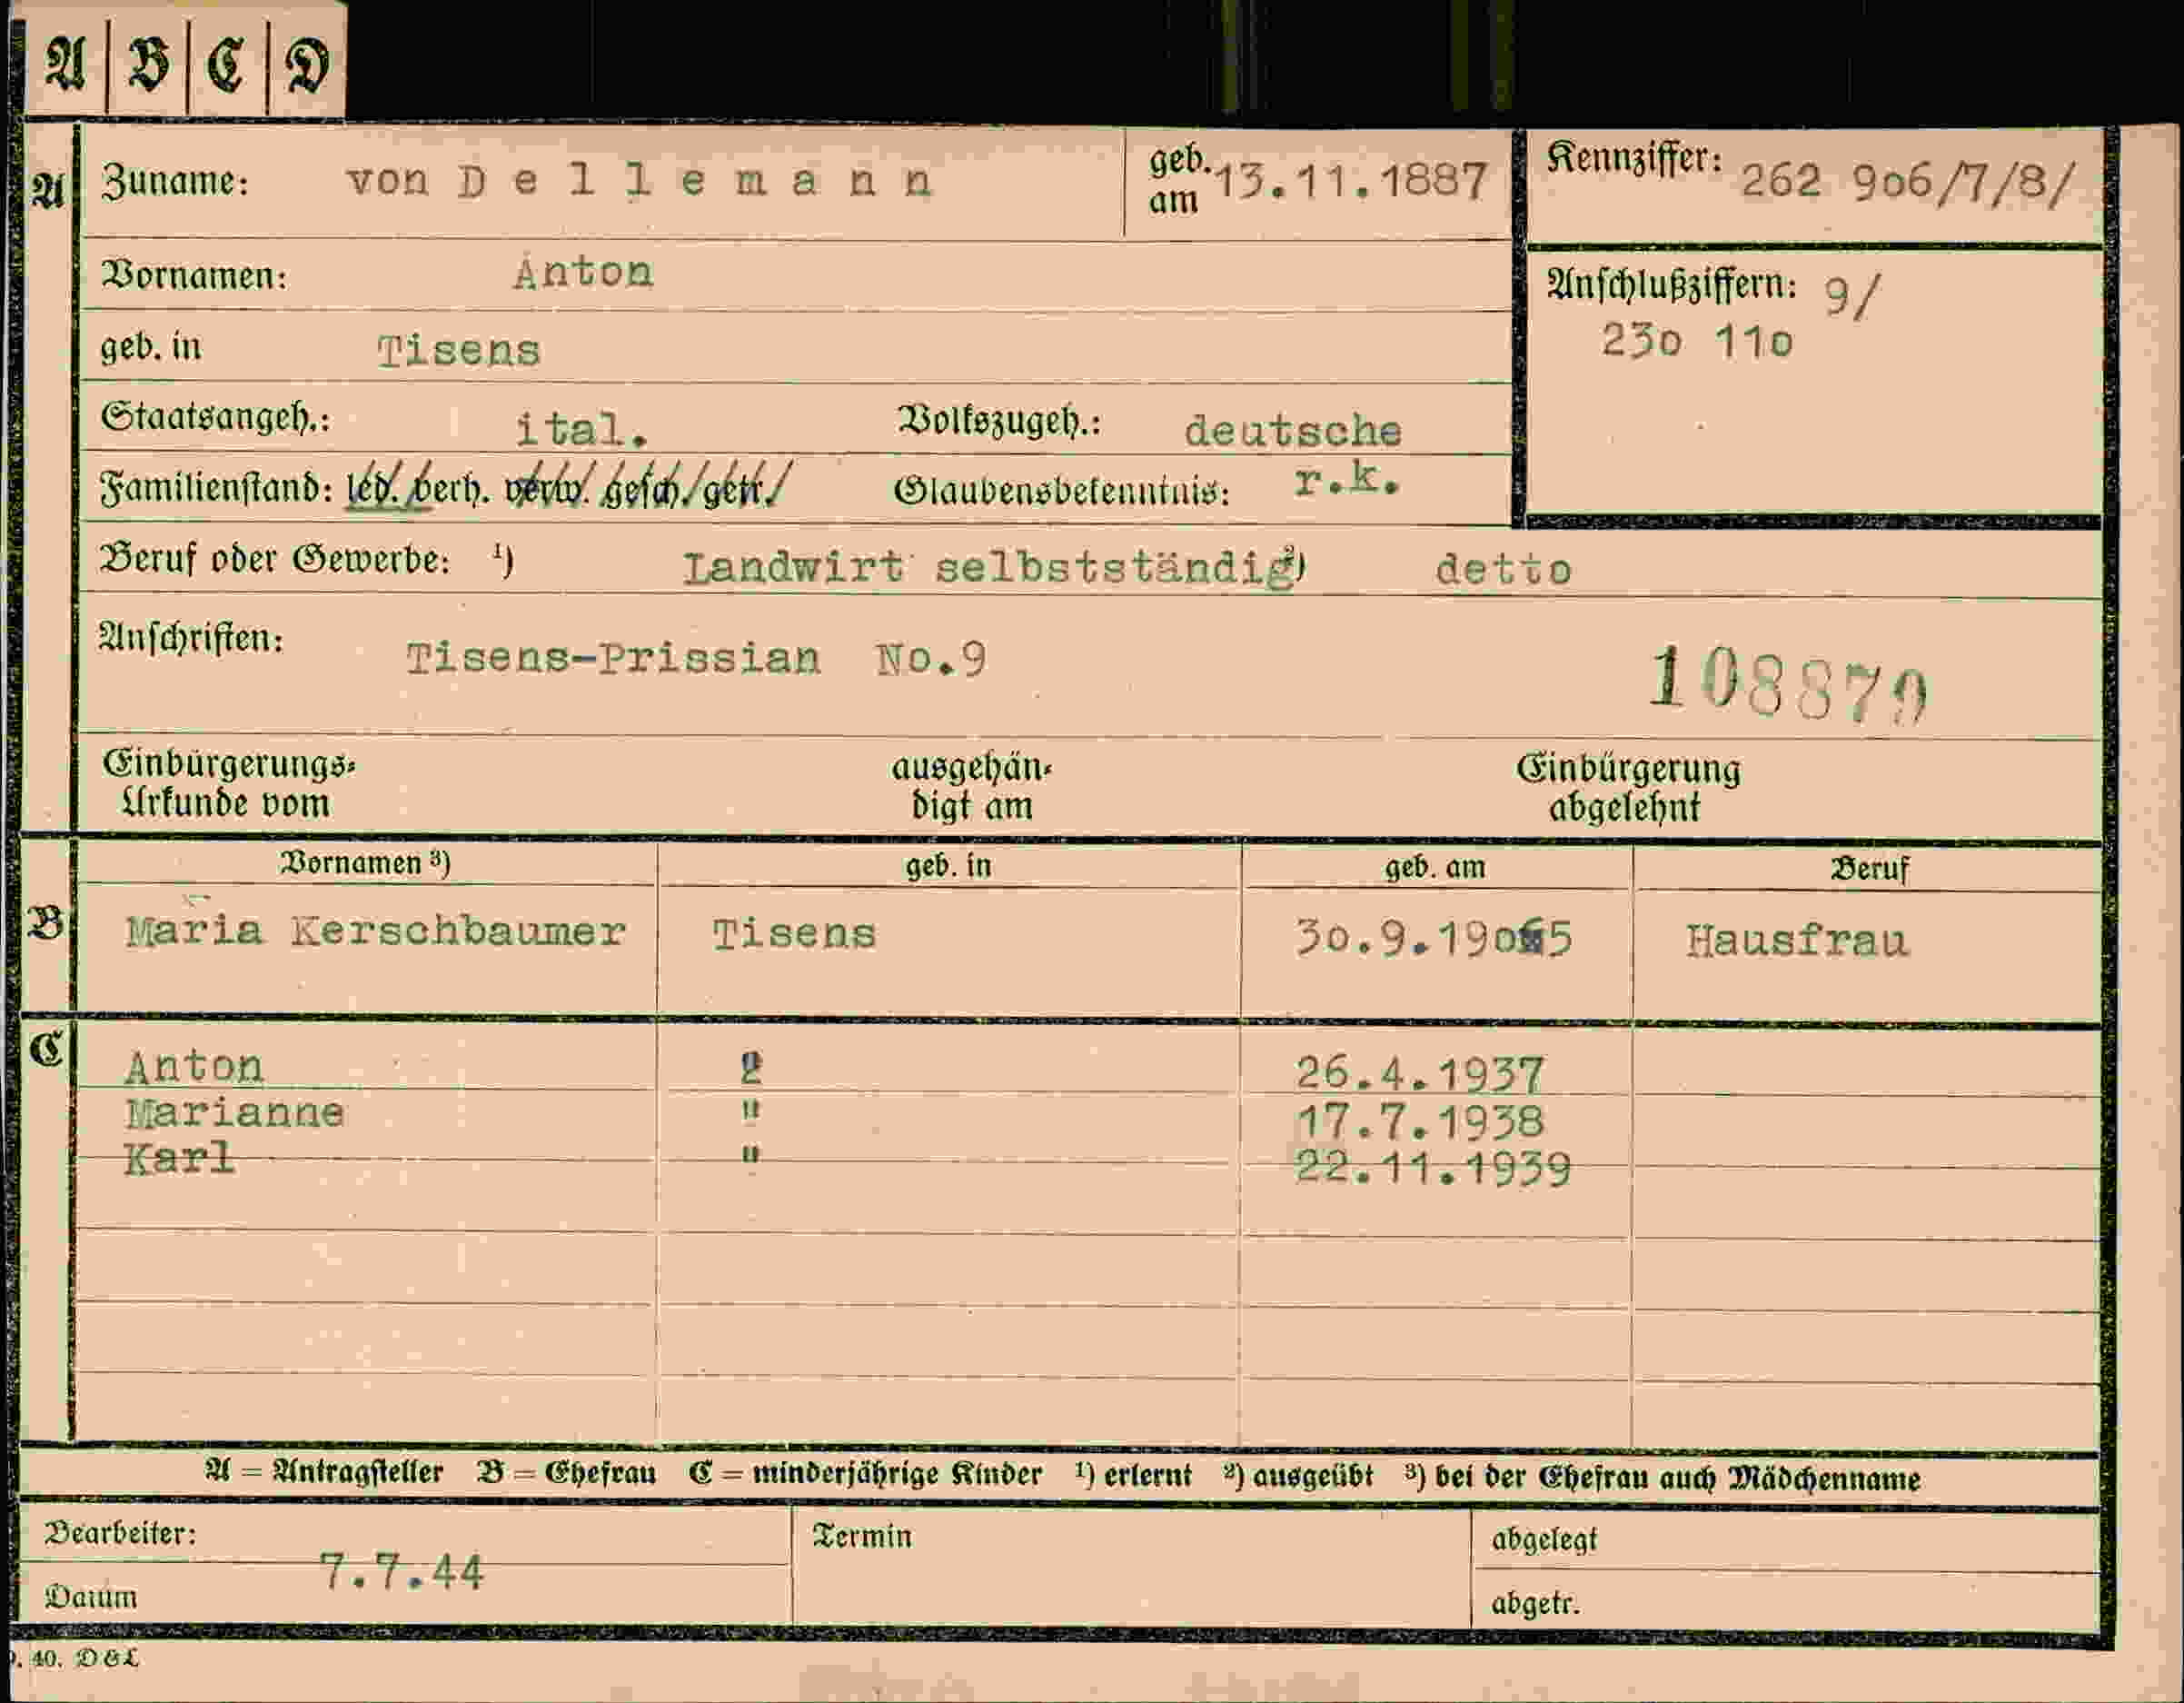 A B C D
A Zuname: von D e l l e m a n n geb. am 13.11.1887 Kennziffer: 262 9o6/7/8/
Vornamen: Anton Anschlußziffern: 9/
23o 11o
geb. in Tisens
Staatsangeh.: ital. Volkszugeh.: deutsche
Familienstand: led. verh. verw. gesch. getr. Glaubensbekenntnis: r.k.
Beruf oder Gewerbe: ¹) Landwirt selbstständig ²) detto
Anschriften: Tisens-Prissian No.9
108879
Einbürgerungs-
Urkunde vom
ausgehän-
digt am
Einbürgerung
abgelehnt
Vornamen ³) geb. in geb. am Beruf
B Maria Kerschbaumer Tisens 3o.9.19o5 Hausfrau
C Anton " 26.4.1937
Marianne " 17.7.1938
Karl " 22.11.1939
A = Antragsteller B = Ehefrau C = minderjährige Kinder ¹) erlernt ²) ausgeübt ³) bei der Ehefrau auch Mädchenname
Bearbeiter: Termin abgelegt
7.7.44
Datum abgetr.
. 40. D & L